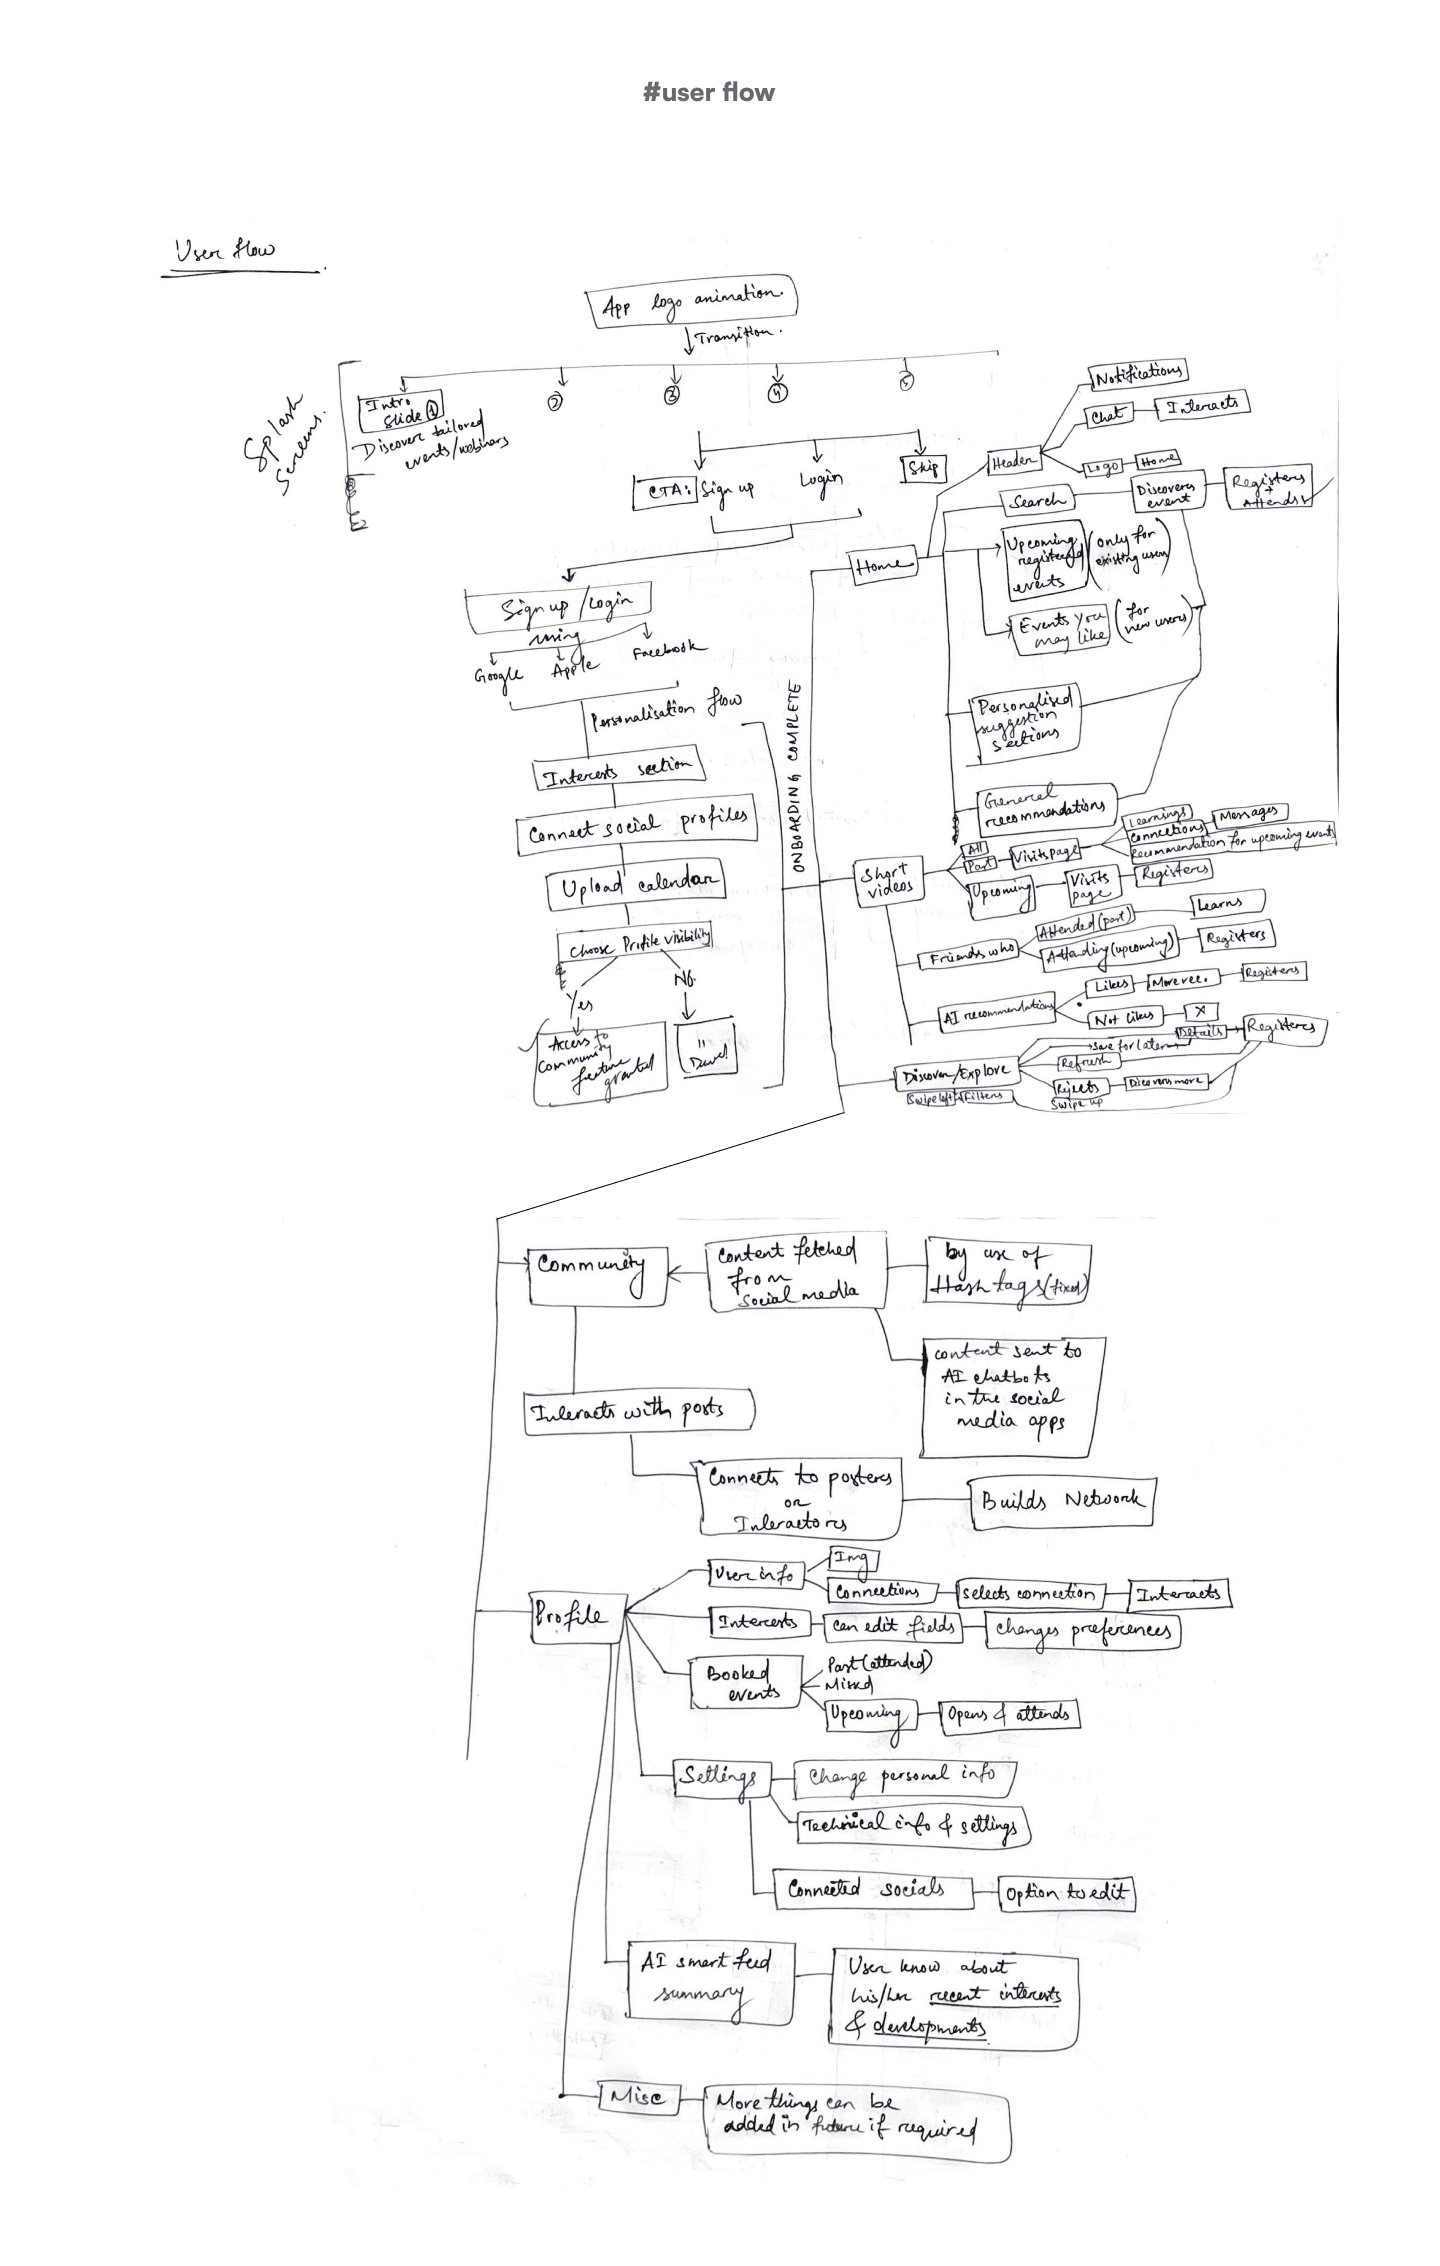 #user flow
User flow
App logo animation.
Transition.
Splash
Screens.
Intro
Slide ①
②
③
④
⑤
Discover tailored
events/webinars
CTA: Sign up
Login
Skip
Sign up / Login
using
Google
Apple
Facebook
Personalisation flow
Interests section
Connect social profiles
Upload calendar
Choose Profile visibility
Yes
No.
Access to
community
feature
granted
ONBOARDING COMPLETE
Home
Header
Notifications
Chat
Interacts
Logo
Home
Search
Discovers
event
Registers
+
Attends
Upcoming
registered
events
(only for
existing users)
Events you
may like
(for
new users)
Personalised
suggestion
sections
General
recommendations
Short
videos
All
Past
Visits page
Learnings
Connections
Messages
Recommendation for upcoming event
Upcoming
Visits
page
Registers
Friends who
Attended (past)
Learns
Attending (upcoming)
Registers
AI recommendations
Likes
More rec.
Registers
Not likes
X
Discover/Explore
Swipe left
Filters
Save for later
Details
Registers
Refresh
Rejects
Discovers more
Swipe up
Community
Content fetched
from
social media
by use of
Hash tags (fixed)
content sent to
AI chatbots
in the social
media apps
Interacts with posts
Connects to posters
or
Interactors
Builds Network
Profile
User info
Img
Connections
selects connection
Interacts
Interests
can edit fields
changes preferences
Booked
events
Past (attended)
Missed
Upcoming
Opens & attends
Settings
Change personal info
Technical info & settings
Connected socials
Option to edit
AI smart feed
summary
User know about
his/her recent interests
& developments.
Misc
More things can be
added in future if required